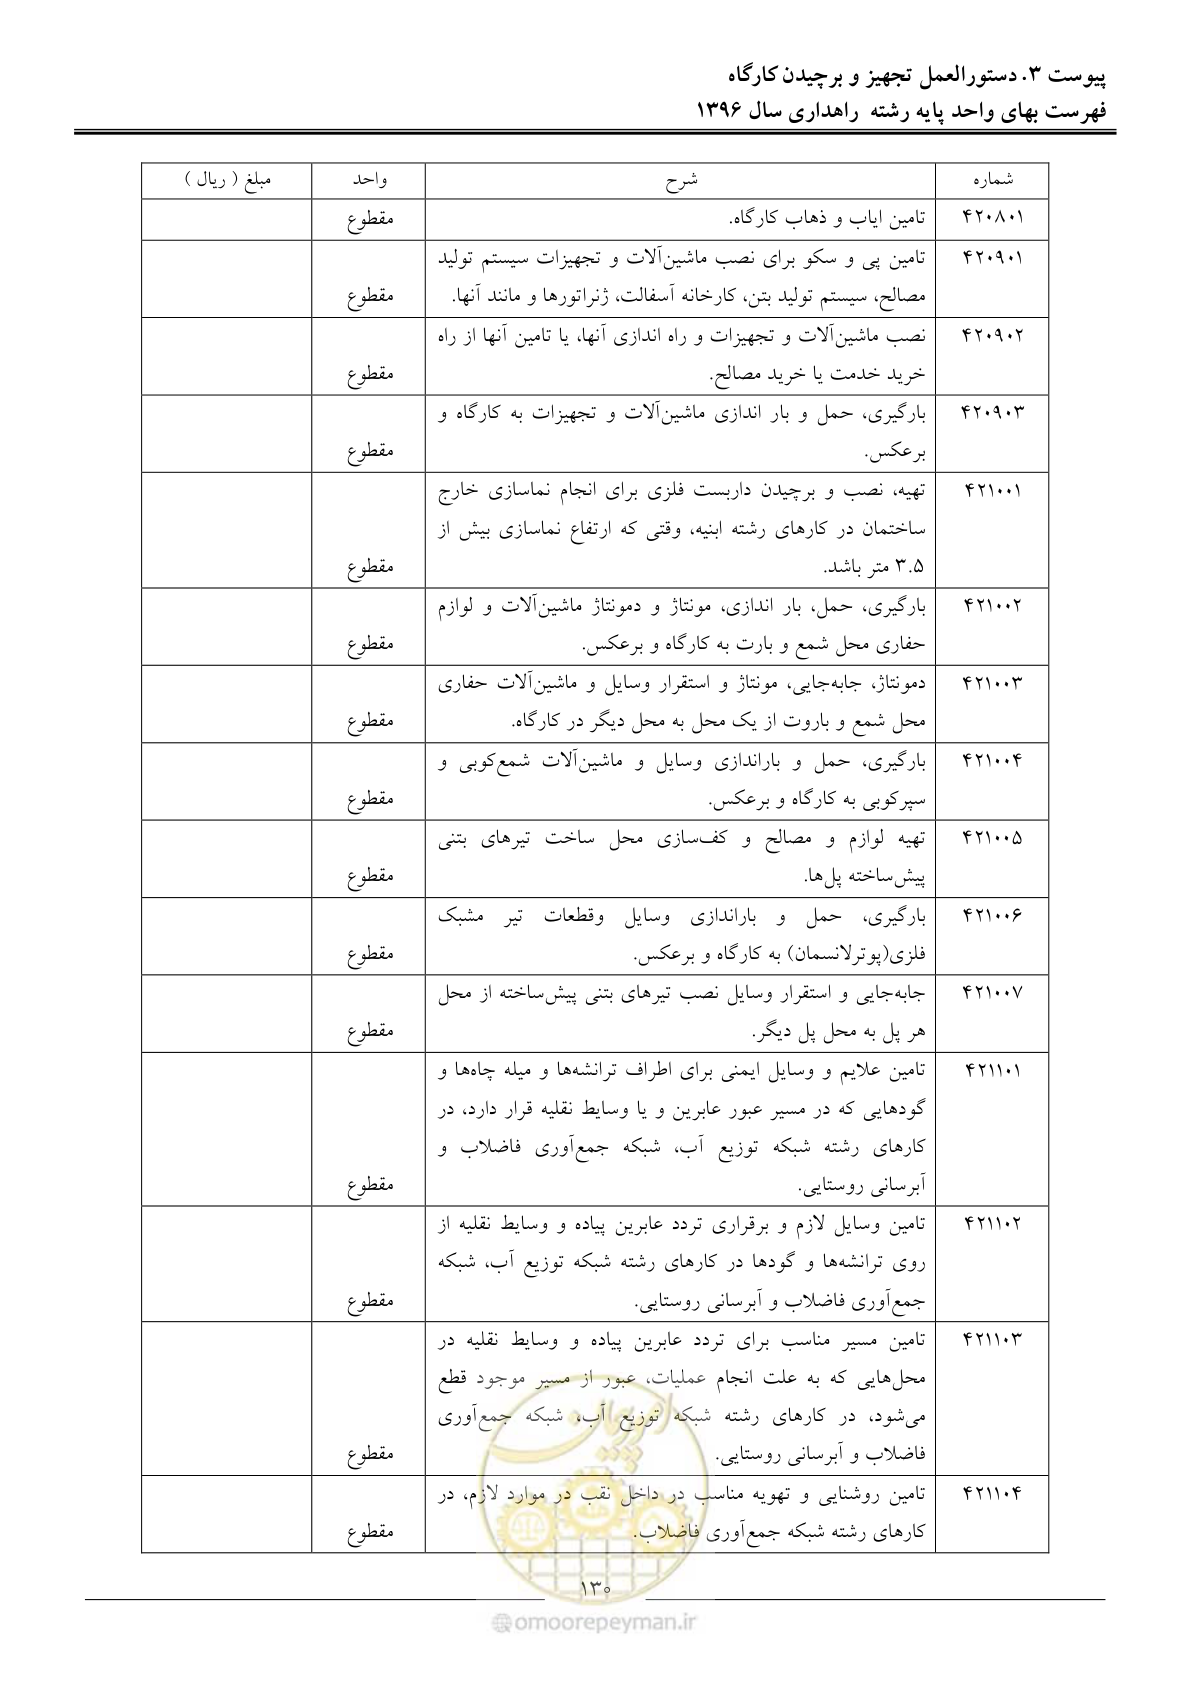 پیوست ۳. دستورالعمل تجهیز و برچیدن کارگاه
فهرست بهای واحد پایه رشته راهداری سال ۱۳۹۶
شماره شرح واحد مبلغ ( ریال )
۴۲۰۸۰۱ تامین ایاب و ذهاب کارگاه. مقطوع
۴۲۰۹۰۱ تامین پی و سکو برای نصب ماشین‌آلات و تجهیزات سیستم تولید
مصالح، سیستم تولید بتن، کارخانه آسفالت، ژنراتورها و مانند آنها. مقطوع
۴۲۰۹۰۲ نصب ماشین‌آلات و تجهیزات و راه اندازی آنها، یا تامین آنها از راه
خرید خدمت یا خرید مصالح. مقطوع
۴۲۰۹۰۳ بارگیری، حمل و بار اندازی ماشین‌آلات و تجهیزات به کارگاه و
برعکس. مقطوع
۴۲۱۰۰۱ تهیه، نصب و برچیدن داربست فلزی برای انجام نماسازی خارج
ساختمان در کارهای رشته ابنیه، وقتی که ارتفاع نماسازی بیش از
۳.۵ متر باشد. مقطوع
۴۲۱۰۰۲ بارگیری، حمل، بار اندازی، مونتاژ و دمونتاژ ماشین‌آلات و لوازم
حفاری محل شمع و بارت به کارگاه و برعکس. مقطوع
۴۲۱۰۰۳ دمونتاژ، جابه‌جایی، مونتاژ و استقرار وسایل و ماشین‌آلات حفاری
محل شمع و باروت از یک محل به محل دیگر در کارگاه. مقطوع
۴۲۱۰۰۴ بارگیری، حمل و باراندازی وسایل و ماشین‌آلات شمع‌کوبی و
سپرکوبی به کارگاه و برعکس. مقطوع
۴۲۱۰۰۵ تهیه لوازم و مصالح و کف‌سازی محل ساخت تیرهای بتنی
پیش‌ساخته پل‌ها. مقطوع
۴۲۱۰۰۶ بارگیری، حمل و باراندازی وسایل وقطعات تیر مشبک
فلزی(پوترلانسمان) به کارگاه و برعکس. مقطوع
۴۲۱۰۰۷ جابه‌جایی و استقرار وسایل نصب تیرهای بتنی پیش‌ساخته از محل
هر پل به محل پل دیگر. مقطوع
۴۲۱۱۰۱ تامین علایم و وسایل ایمنی برای اطراف ترانشه‌ها و میله چاه‌ها و
گودهایی که در مسیر عبور عابرین و یا وسایط نقلیه قرار دارد، در
کارهای رشته شبکه توزیع آب، شبکه جمع‌آوری فاضلاب و
آبرسانی روستایی. مقطوع
۴۲۱۱۰۲ تامین وسایل لازم و برقراری تردد عابرین پیاده و وسایط نقلیه از
روی ترانشه‌ها و گودها در کارهای رشته شبکه توزیع آب، شبکه
جمع‌آوری فاضلاب و آبرسانی روستایی. مقطوع
۴۲۱۱۰۳ تامین مسیر مناسب برای تردد عابرین پیاده و وسایط نقلیه در
محل‌هایی که به علت انجام عملیات، عبور از مسیر موجود قطع
می‌شود، در کارهای رشته شبکه توزیع آب، شبکه جمع‌آوری
فاضلاب و آبرسانی روستایی. مقطوع
۴۲۱۱۰۴ تامین روشنایی و تهویه مناسب در داخل نقب در موارد لازم، در
کارهای رشته شبکه جمع‌آوری فاضلاب. مقطوع
امور پیمان
۱۳۰
omoorepeyman.ir